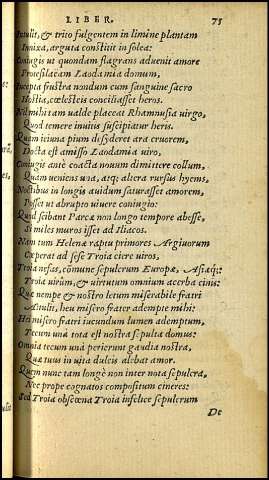 LIBER. 75
Intulit, & trito fulgentem in limine plantam
Innixa, arguta constitit in solea:
Coniugis ut quondam flagrans aduenit amore
Protesilaeam Laodamia domum,
Incepta frustra nondum cum sanguine sacro
Hostia, cœlesteis conciliasset heros.
Nil mihi tam ualde placeat Rhamnusia uirgo,
Quod temere inuitis suscipiatur heris.
Quàm ieiuna pium desyderet ara cruorem,
Docta est amisso Laodamia uiro,
Coniugis antè coacta nouum dimittere collum,
Quam ueniens una, atq; altera rursus hyems,
Noctibus in longis auidum saturasset amorem,
Posset ut abrupto uiuere coniugio:
Quod scibant Parcæ non longo tempore abesse,
Si miles muros isset ad Iliacos.
Nam tum Helenæ raptu primores Argiuorum
Cœperat ad sese Troia ciere uiros,
Troia nefas, cōmune sepulcrum Europæ, Asiæq;:
Troia uirûm, & uirtutum omnium acerba cinis:
Quæ nempe & nostro letum miserabile fratri
Attulit, heu misero frater adempte mihi:
Hei misero fratri iucundum lumen ademptum,
Tecum unà tota est nostra sepulta domus:
Omnia tecum unà perierunt gaudia nostra,
Quæ tuus in uita dulcis alebat amor.
Quem nunc tam longè non inter nota sepulcra,
Nec prope cognatos compositum cineres:
Sed Troia obscena Troia infelice sepulcrum
De